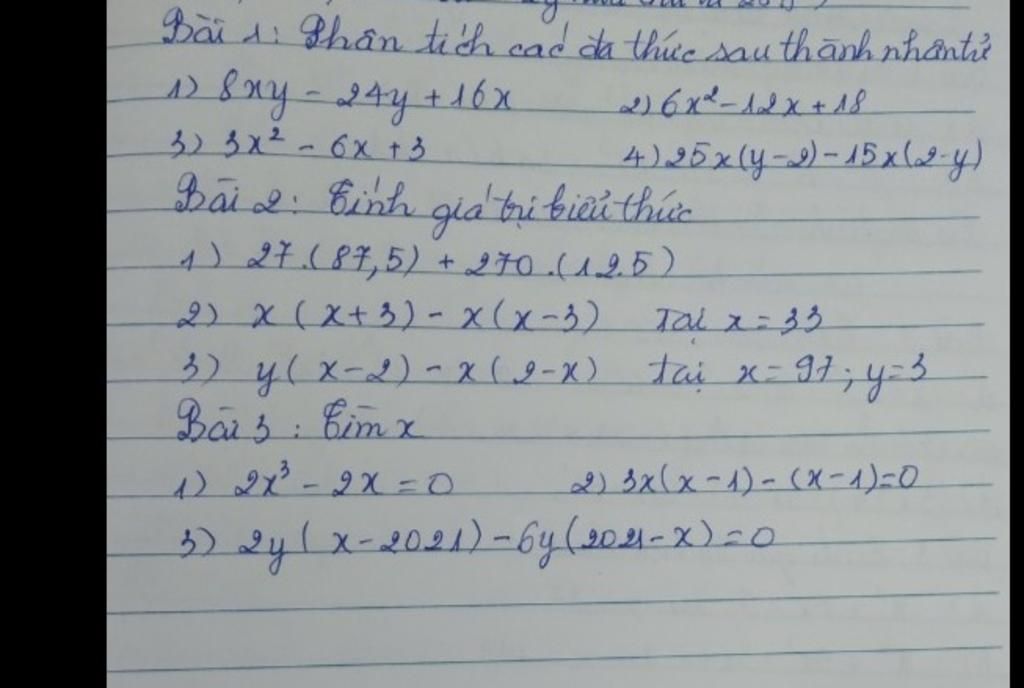 Bài 1: Phân tích các đa thức sau thành nhân tử
1) 8xy - 24y + 16x 2) 6x² - 12x + 18
3) 3x² - 6x + 3 4) 25x(y-2) - 15x(2-y)
Bài 2: Tính giá trị biểu thức
1) 27.(87,5) + 270.(12.5)
2) x(x+3) - x(x-3) tại x = 33
3) y(x-2) - x(2-x) tại x = 97; y=3
Bài 3: Tìm x
1) 2x³ - 2x = 0 2) 3x(x-1) - (x-1)=0
3) 2y(x-2021) - 6y(2021-x) = 0